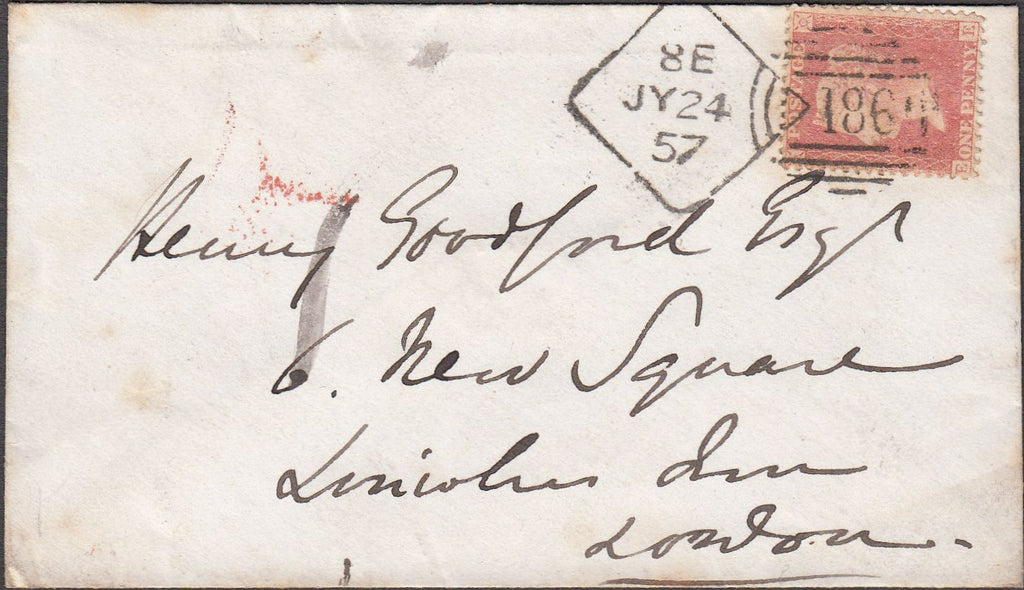 8E
JY24
57
186
POSTAGE
ONE PENNY
E
Henry Goodford Esqr
6. New Square
Lincolns Inn
London.